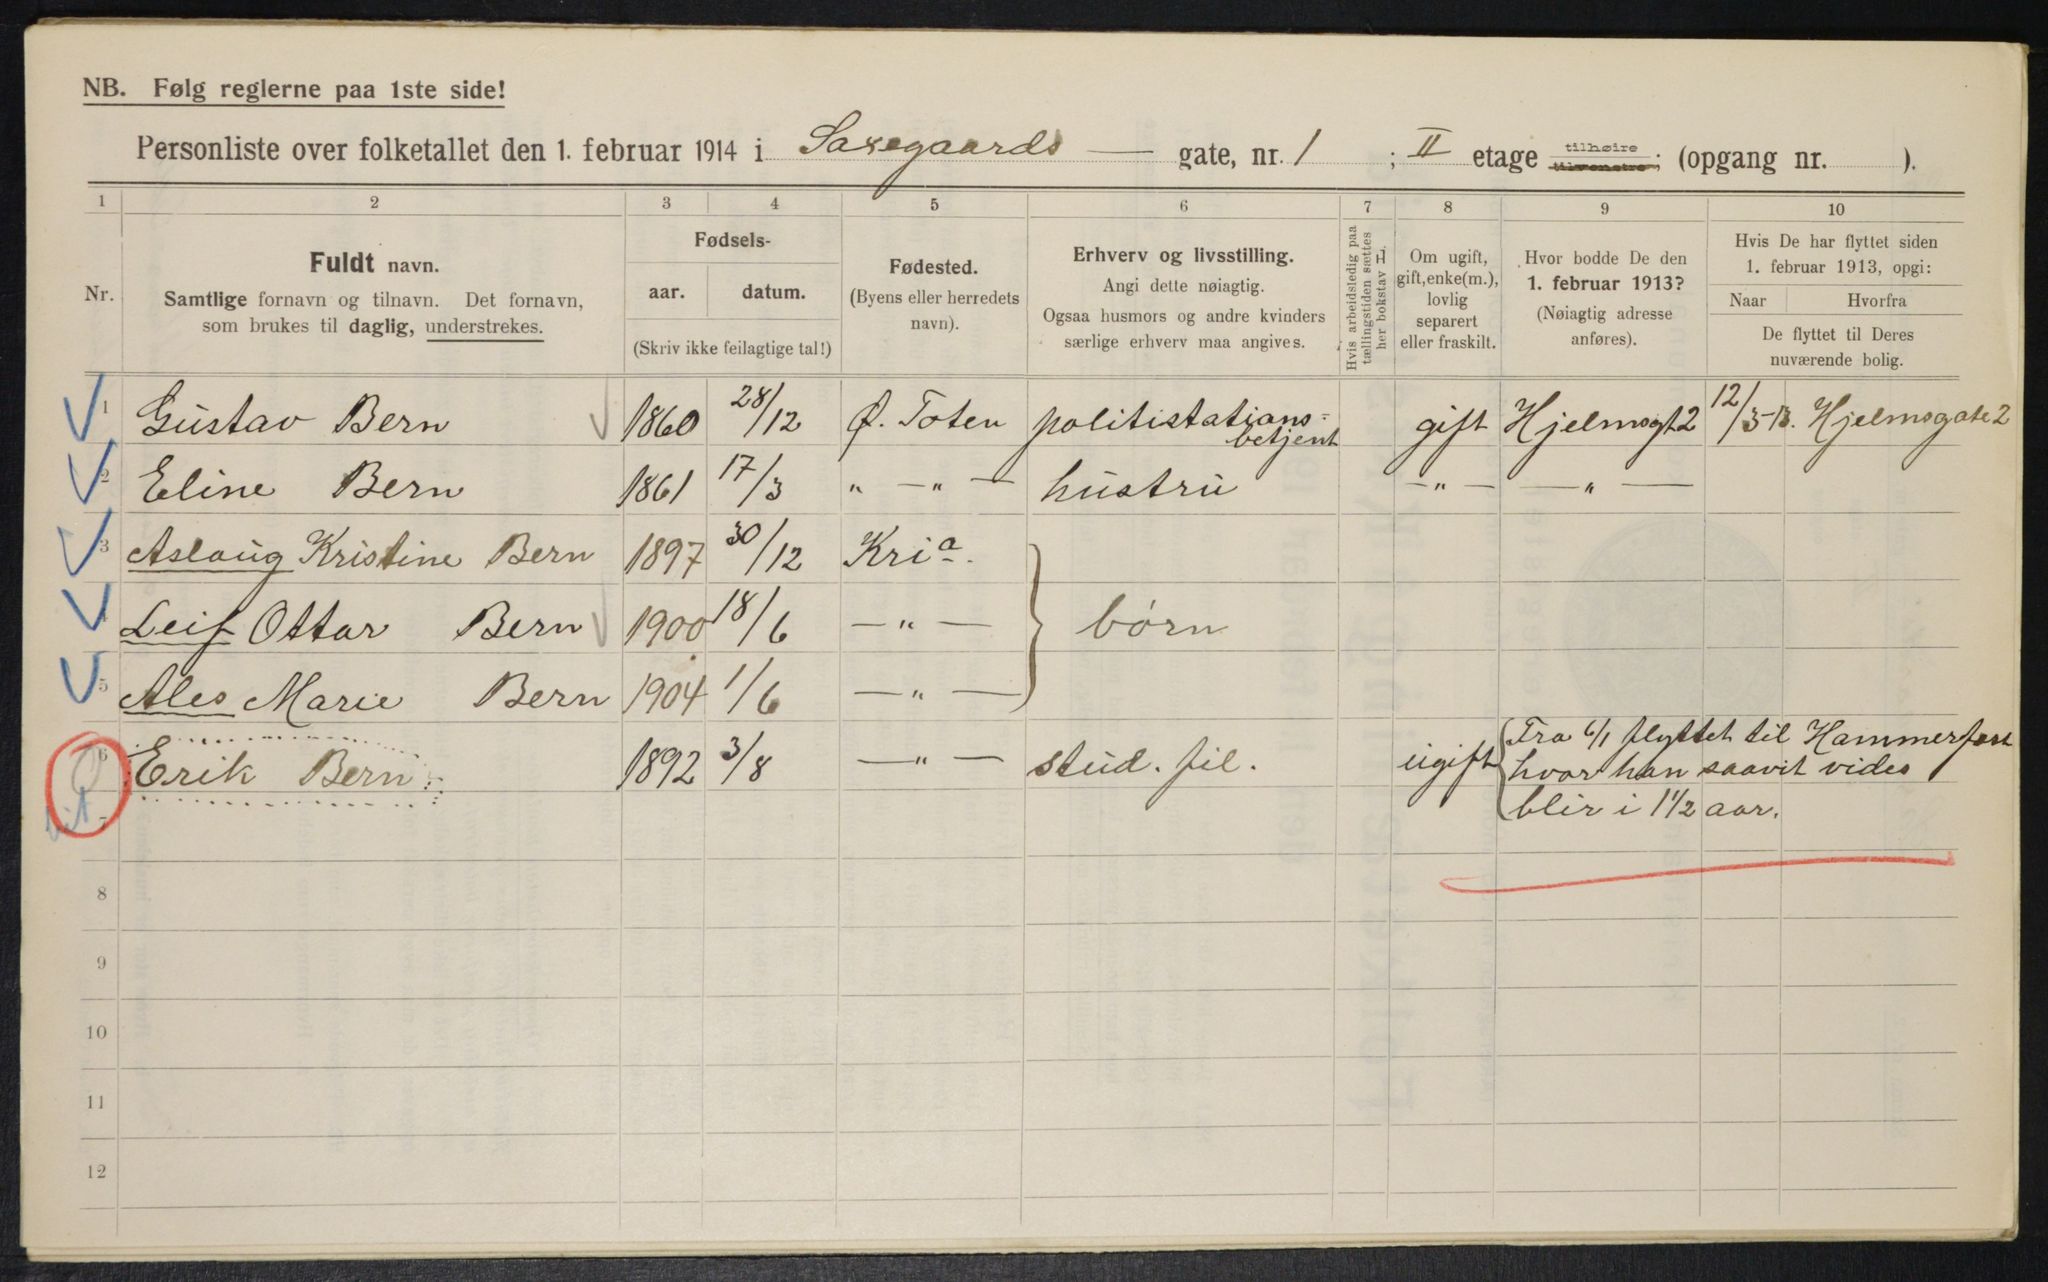 NB. Følg reglerne paa 1ste side!
Personliste over folketallet den 1. februar 1914 i Saxegaards — gate, nr. 1 ; II etage tilhøire tilvenstre; (opgang nr. ).
1 2 3 4 5 6 7 8 9 10
Nr.
Fuldt navn.
Samtlige fornavn og tilnavn. Det fornavn,
som brukes til daglig, understrekes.
Fødsels-
aar. datum.
(Skriv ikke feilagtige tal!)
Fødested.
(Byens eller herredets
navn).
Erhverv og livsstilling.
Angi dette nøiagtig.
Ogsaa husmors og andre kvinders
særlige erhverv maa angives.
Hvis arbeidsledig paa
tællingstiden sættes
her bokstav L.
Om ugift,
gift, enke(m.),
lovlig
separert
eller fraskilt.
Hvor bodde De den
1. februar 1913?
(Nøiagtig adresse
anføres).
Hvis De har flyttet siden
1. februar 1913, opgi:
Naar Hvorfra
De flyttet til Deres
nuværende bolig.
1 Gustav Bern 1860 28/12 Ø. Toten politistations-betjent gift Hjelmsgt 2 12/3-13. Hjelmsgate 2
2 Eline Bern 1861 17/3 „ — „ — hustru — „ — — „ —
3 Aslaug Kristine Bern 1897 30/12 Kria.
4 Leif Ottar Bern 1900 18/6 — „ — børn
5 Ales Marie Bern 1904 1/6 — „ —
6 Erik Bern 1892 3/8 — „ — stud. fil. ugift Fra 6/1 flyttet til Hammerfest
hvor han saavit vides
7 blir i 1 1/2 aar.
8
9
10
11
12